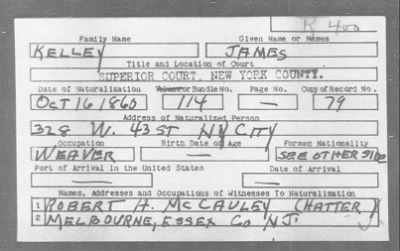 R 400
Family Name Given Name or Names
KELLEY JAMES
Title and Location of Court
SUPERIOR COURT, NEW YORK COUNTY.
Date of Naturalization Volume or Bundle No. Page No. Copy of Record No.
OCT 16 1860 114 — 79
Address of Naturalized Person
328 W. 43 ST NY CITY
Occupation Birth Date or Age Former Nationality
WEAVER — SEE OTHER SIDE
Port of Arrival in the United States Date of Arrival
— —
Names, Addresses and Occupations of Witnesses To Naturalization
1 ROBERT A. McCAULEY (HATTER)
2 MELBOURNE, ESSEX CO NJ